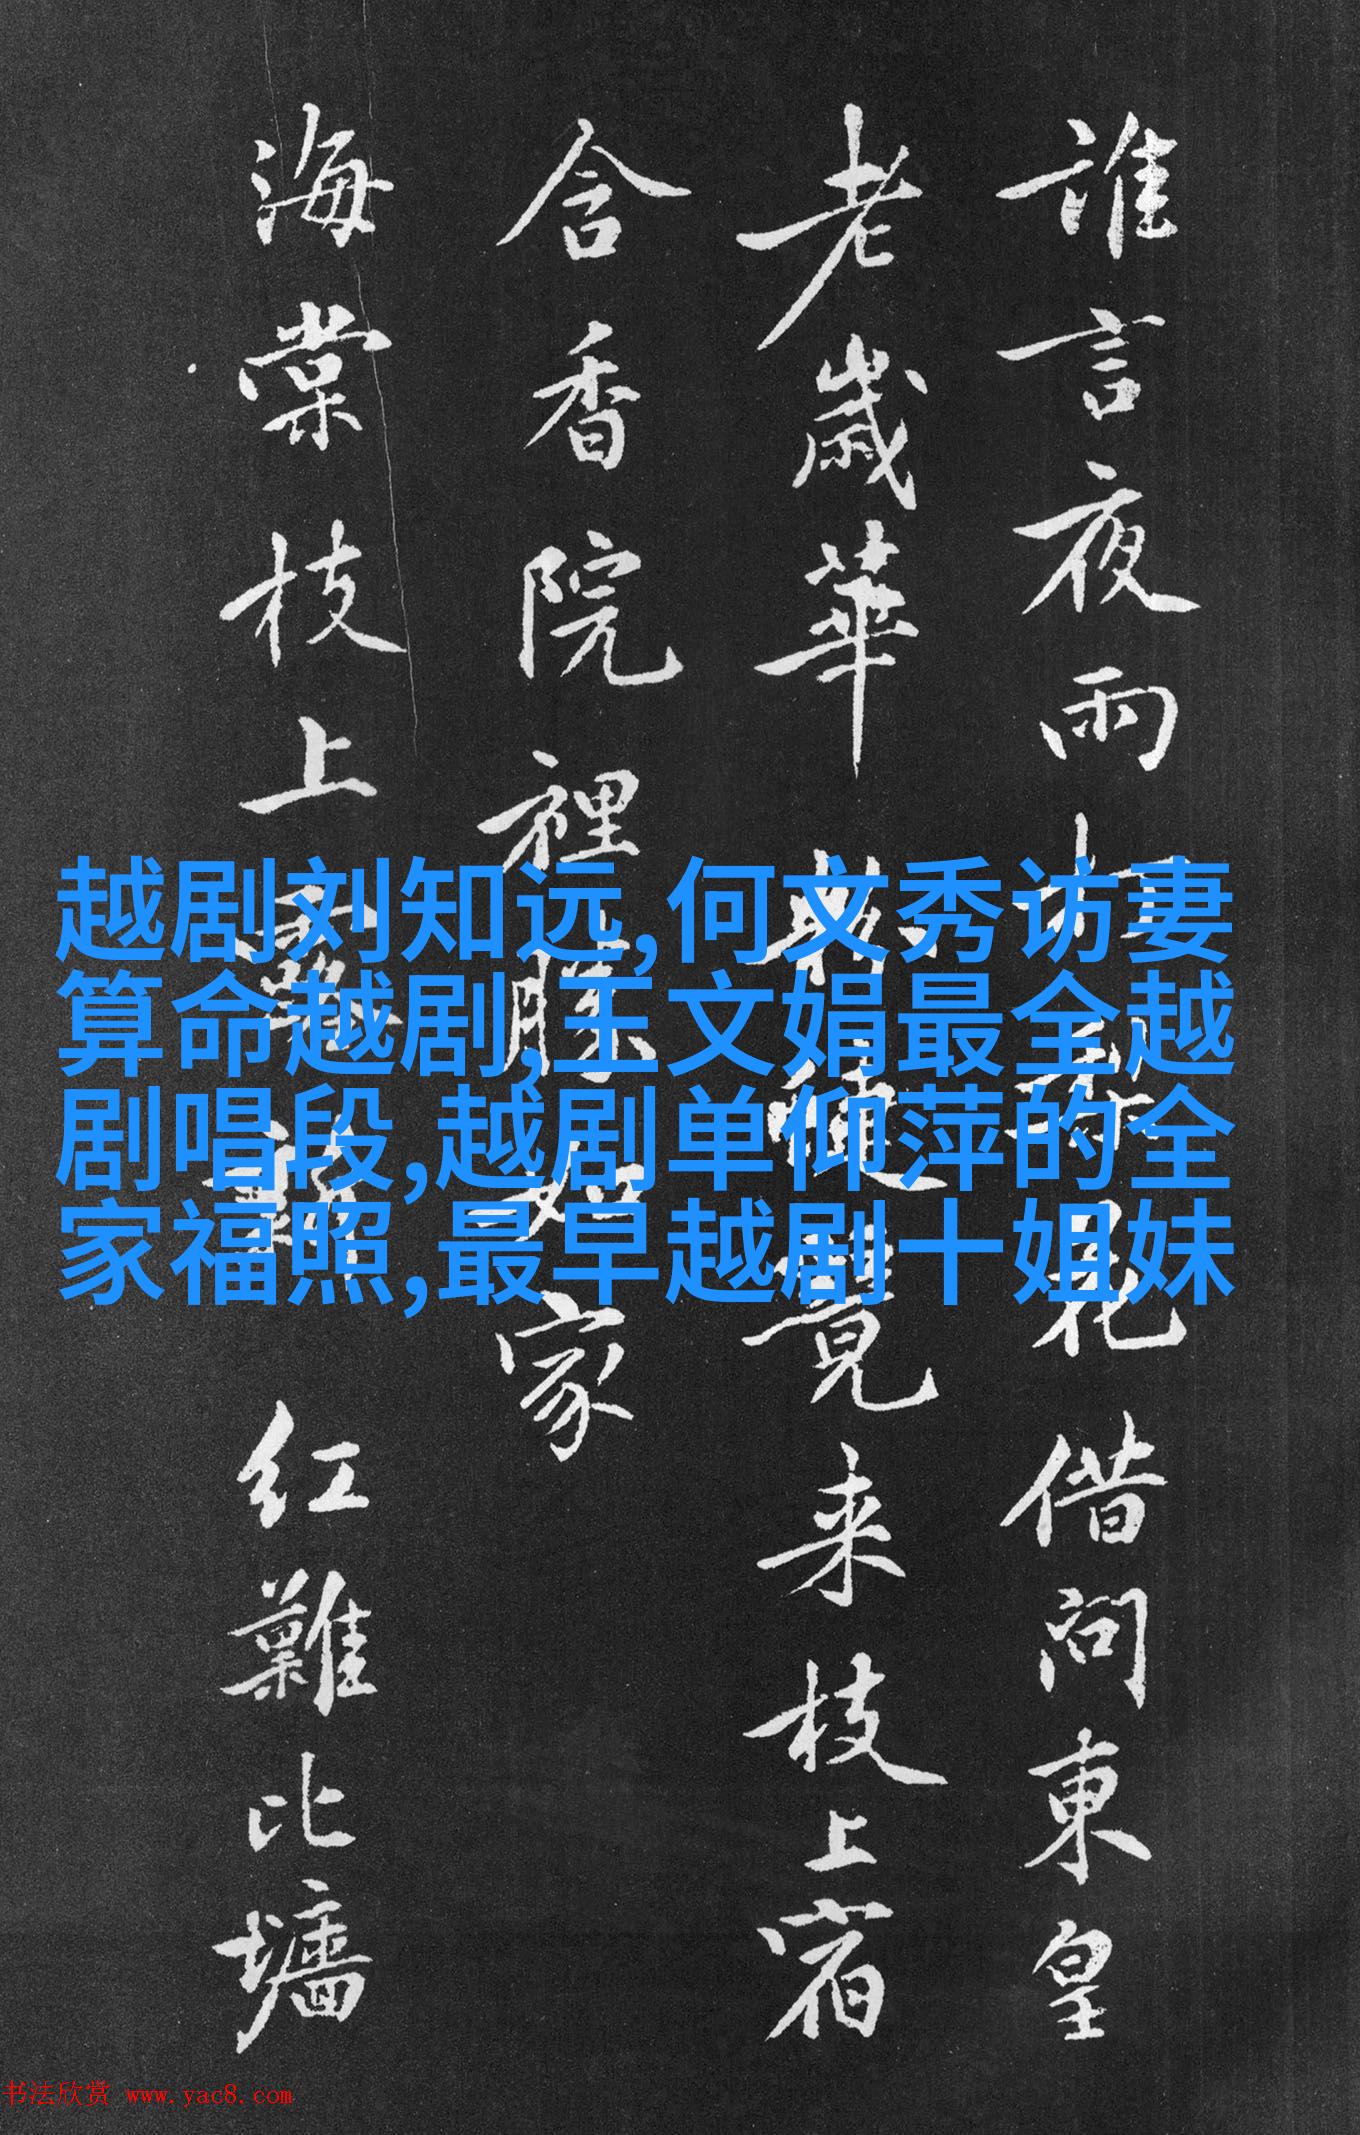 誰言夜雨打梨花借問東皇
老歲華蝶夢覺来枝上宿
含香院裡勝如家
海棠枝上
红難比墻
越剧刘知远,何文秀访妻
算命越剧,王文娟最全越
剧唱段,越剧单仰萍的全
家福照,最早越剧十姐妹
书法欣赏 www.yac8.com